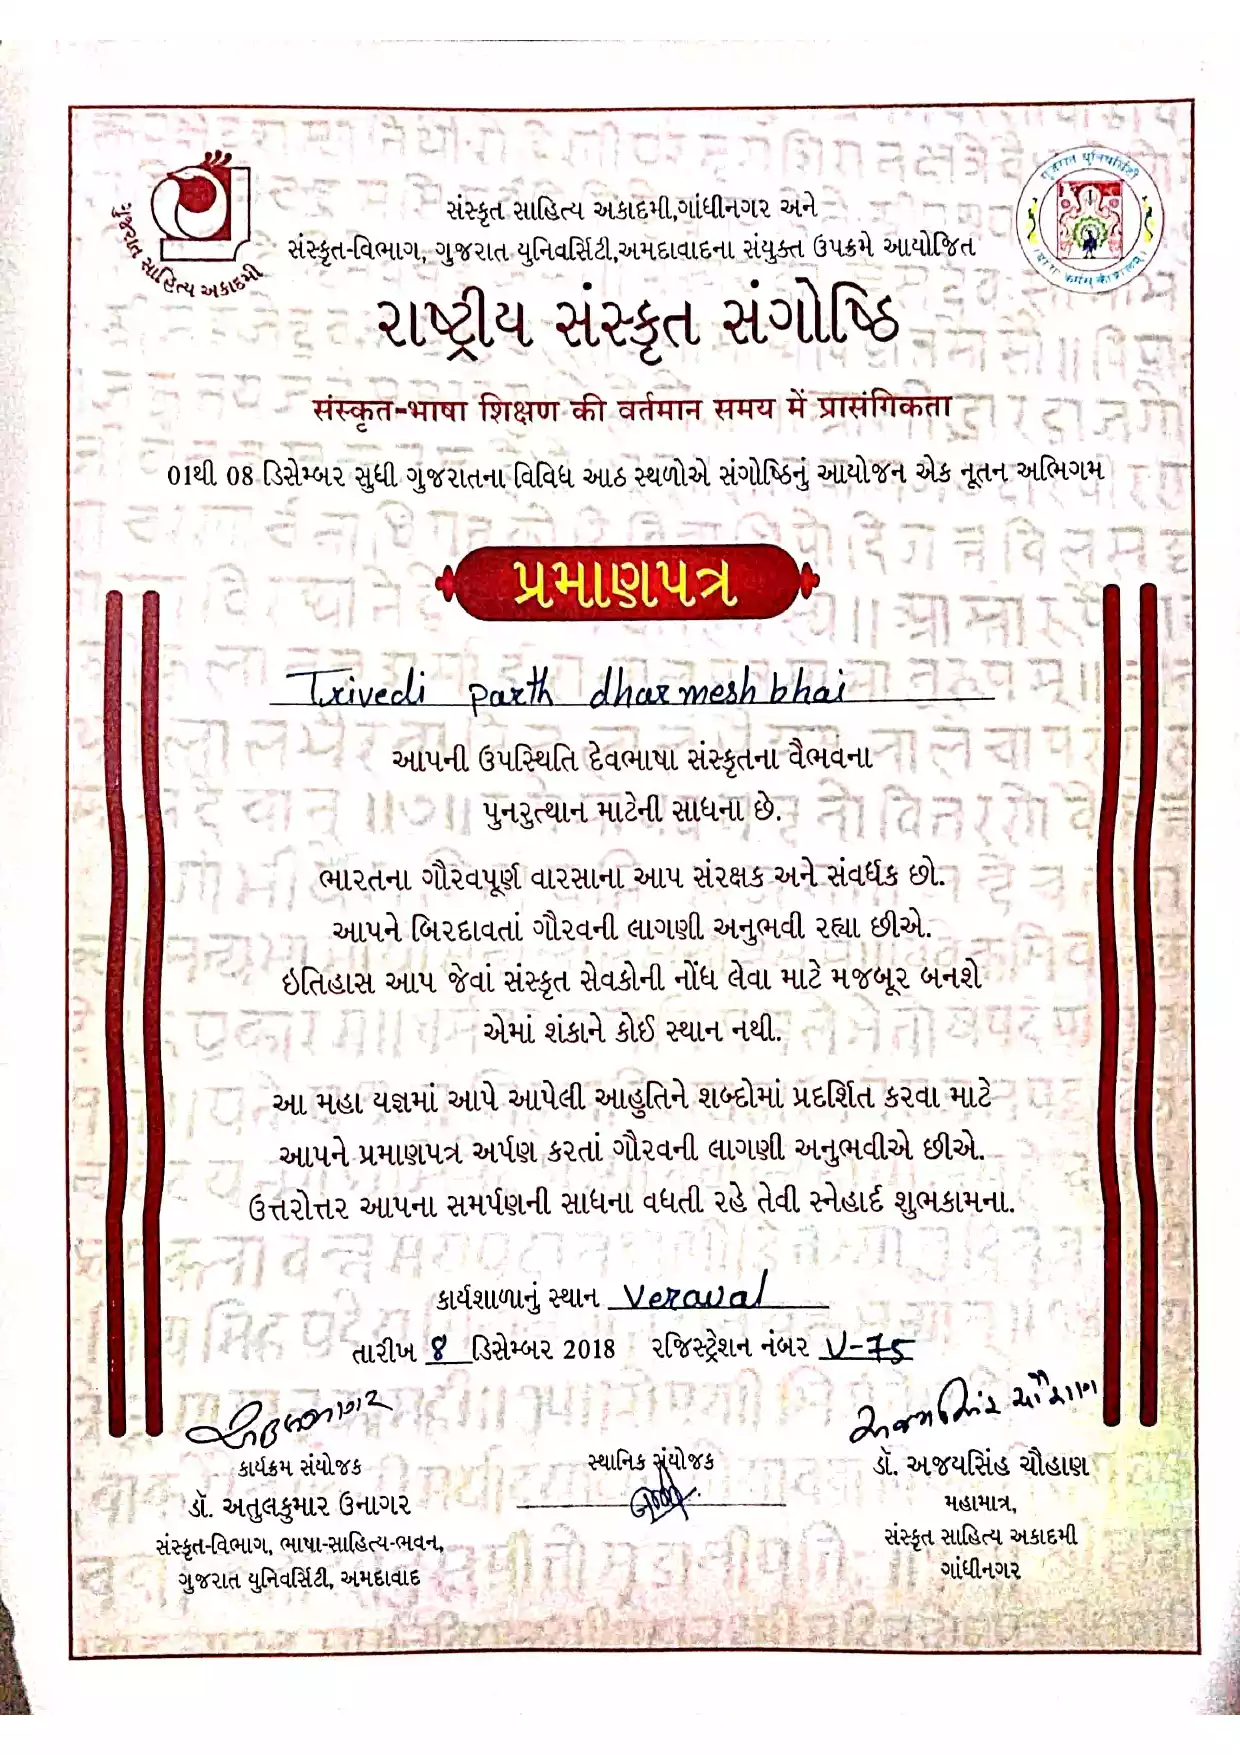 ગુજરાત સાહિત્ય અકાદમી
ગુજરાત યુનિવર્સિટી
સંસ્કૃત સાહિત્ય અકાદમી,ગાંધીનગર અને
સંસ્કૃત-વિભાગ, ગુજરાત યુનિવર્સિટી,અમદાવાદના સંયુક્ત ઉપક્રમે આયોજિત
રાષ્ટ્રીય સંસ્કૃત સંગોષ્ઠિ
संस्कृत-भाषा शिक्षण की वर्तमान समय में प्रासंगिकता
01થી 08 ડિસેમ્બર સુધી ગુજરાતના વિવિધ આઠ સ્થળોએ સંગોષ્ઠિનું આયોજન એક નૂતન અભિગમ
પ્રમાણપત્ર
Trivedi parth dharmeshbhai
આપની ઉપસ્થિતિ દેવભાષા સંસ્કૃતના વૈભવના
પુનરુત્થાન માટેની સાધના છે.
ભારતના ગૌરવપૂર્ણ વારસાના આપ સંરક્ષક અને સંવર્ધક છો.
આપને બિરદાવતાં ગૌરવની લાગણી અનુભવી રહ્યા છીએ.
ઇતિહાસ આપ જેવાં સંસ્કૃત સેવકોની નોંધ લેવા માટે મજબૂર બનશે
એમાં શંકાને કોઈ સ્થાન નથી.
આ મહા યજ્ઞમાં આપે આપેલી આહુતિને શબ્દોમાં પ્રદર્શિત કરવા માટે
આપને પ્રમાણપત્ર અર્પણ કરતાં ગૌરવની લાગણી અનુભવીએ છીએ.
ઉત્તરોત્તર આપના સમર્પણની સાધના વધતી રહે તેવી સ્નેહાર્દ શુભકામના.
કાર્યશાળાનું સ્થાન Veraval
તારીખ 8 ડિસેમ્બર 2018 રજિસ્ટ્રેશન નંબર V-75
અજયસિંહ ચૌહાણ
કાર્યક્રમ સંયોજક
ડૉ. અતુલકુમાર ઉનાગર
સંસ્કૃત-વિભાગ, ભાષા-સાહિત્ય-ભવન,
ગુજરાત યુનિવર્સિટી, અમદાવાદ
સ્થાનિક સંયોજક
ડૉ. અજયસિંહ ચૌહાણ
મહામાત્ર,
સંસ્કૃત સાહિત્ય અકાદમી
ગાંધીનગર